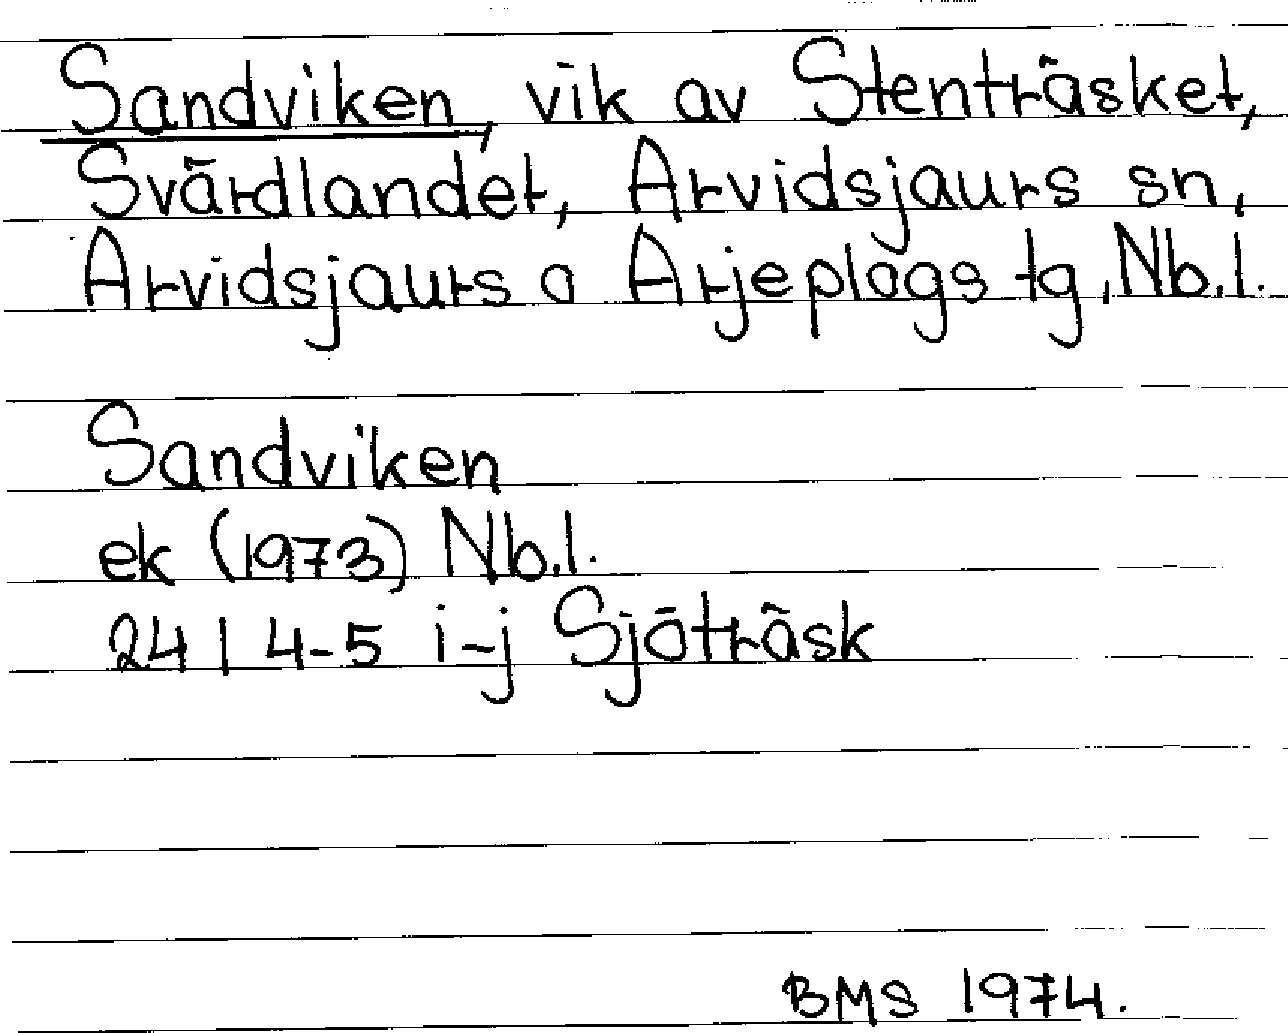 Sandviken, vik av Stenträsket,
Svärdlandet, Arvidsjaurs sn,
Arvidsjaurs o Arjeplogs tg, Nb.l.
Sandviken
ek (1973) Nb.l.
24 I 4-5 i-j Sjöträsk
BMS 1974.